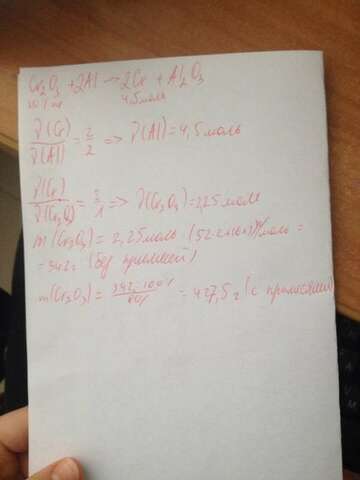 Cr₂O₃ + 2Al → 2Cr + Al₂O₃
4,5 моль
ν(Cr)/ν(Al) = 2/2 => ν(Al) = 4,5 моль
ν(Cr)/ν(Cr₂O₃) = 2/1 => ν(Cr₂O₃) = 2,25 моль
m(Cr₂O₃) = 2,25 моль · (52·2+16·3) г/моль =
= 342 г (без примесей)
m(Cr₂O₃) = 342·100%/80% = 427,5 г (с примесями)